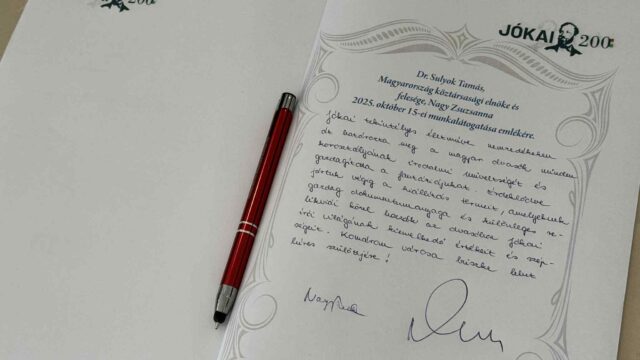 200
JÓKAI 200
Dr. Sulyok Tamás,
Magyarország köztársasági elnöke és
felesége, Nagy Zsuzsanna
2025. október 15-ei munkalátogatása emlékére.
Jókai tekintélyes életműve nemzedékeken
át határozta meg a magyar olvasók minden
korosztályának irodalmi műveltségét és
gazdagította a fantáziájukat. Érdeklődve
jártuk végig a kiállítás termeit, amelyeknek
gazdag dokumentumanyaga és különleges re-
likviái közel hozták az olvasóhoz Jókai
írói világának kiemelkedő értékeit és szép-
ségeit. Komárom városa büszke lehet
híres szülöttjére!